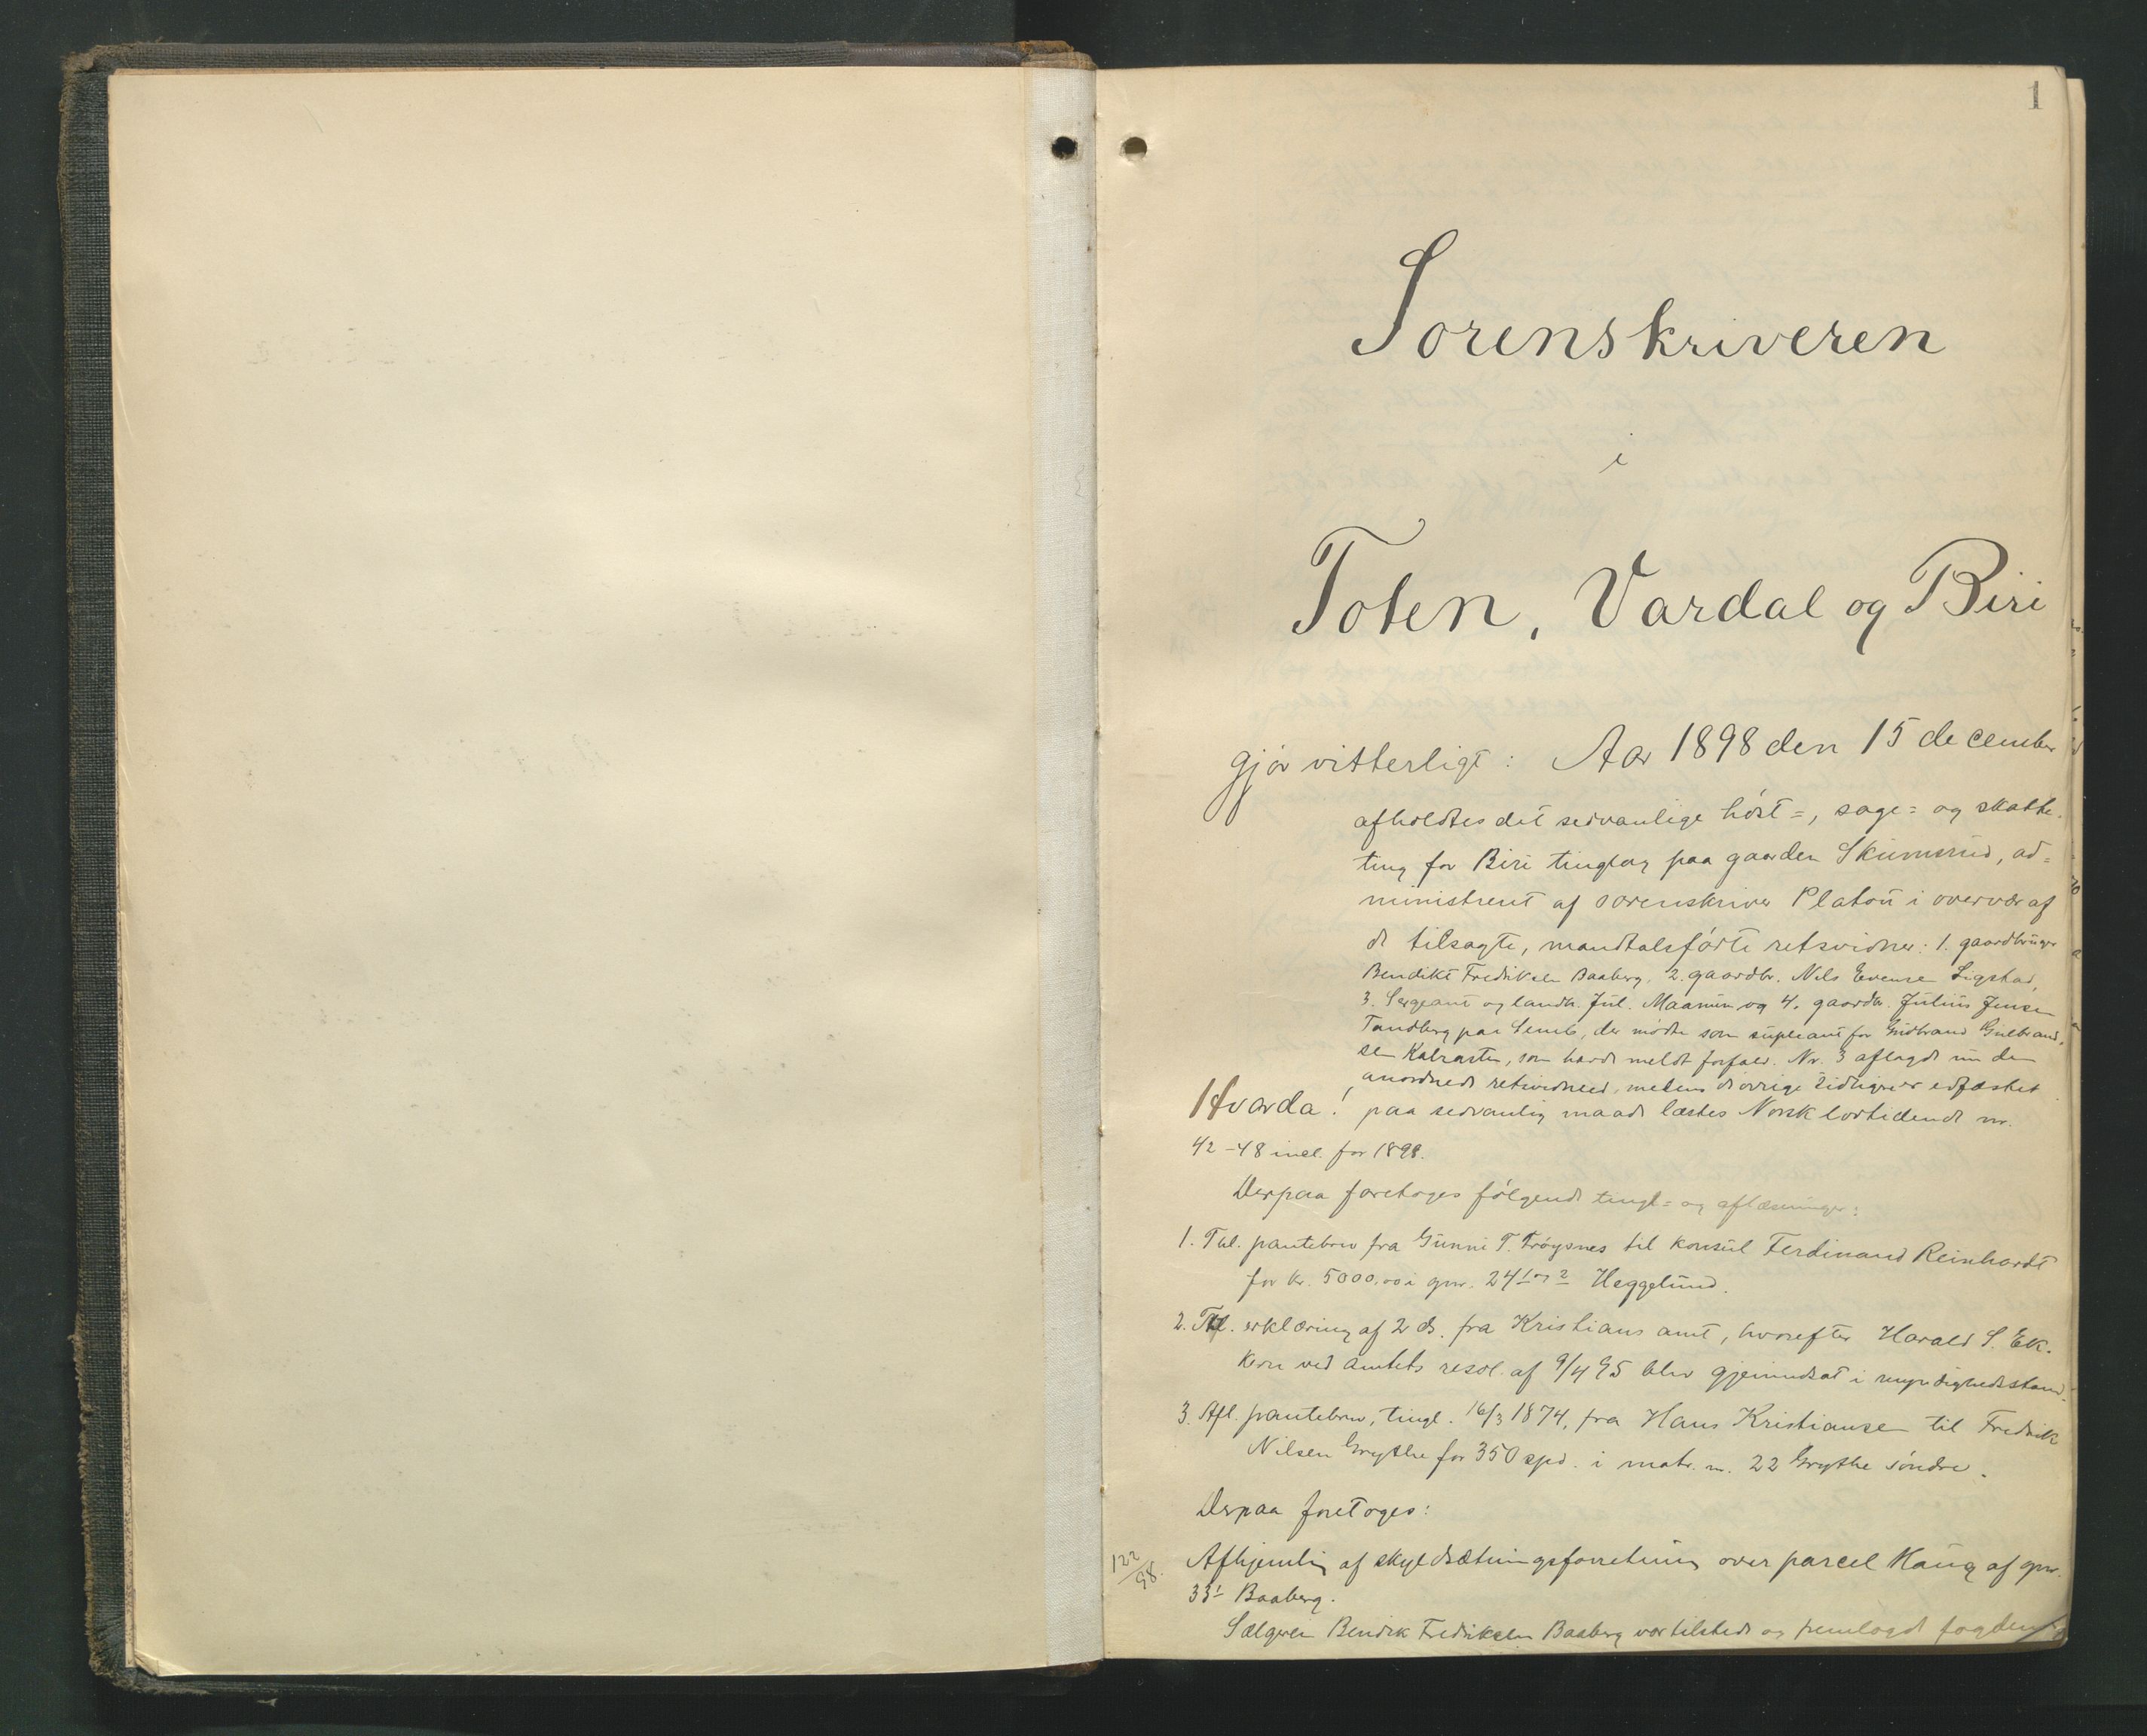 1
Sorenskriveren
i
Toten, Vardal og Biri
gjør vitterligt: Aar 1898 den 15 december
afholdtes det sedvanlige høst=, sage= og skatte-
ting for Biri tinglag paa gaarden Skumsrud, ad=
ministreret af sorenskriver Platou i overvær af
de tilsagte, mandtalsførte retsvidner: 1. gaardbruger
Bendikt Fredriksen Baaberg, 2. gaardbr. Nils Evensen Sigstad,
3. Sergeant og landh. Jul. Maanum og 4. gaardbr. Julius Jensen
Tandberg paa Semb, der mødte som supleant for Gudbrand Gulbrand-
sen Kalrasten, som havde meldt forfald. Nr. 3 aflagde nu den
anordnede retsvidneed, medens de øvrige tidligere er edfæstet
Hvorda! paa sedvanlig maade læstes Norsk lovtidende nr.
42-48 incl. for 1898.
Derpaa foretoges følgende tingl= og aflæsninger:
1. Thl. pantebrev fra Gunni T. Frøysnes til konsul Ferdinand Reinhardt
for kr. 5000.00 i gnr. 24 1 og 2 Heggelund.
2. Thl. erklæring af 2 ds. fra Kristians amt, hvorefter Harald S. Ek-
kern ved amtets resol. af 9/4 95 blev gjenindsat i myndighedsstand.
3. Afl. pantebrev, tingl. 16/3 1874, fra Hans Kristiansen til Fredrik
Nilsen Grythe for 350 spd. i matr. nr. 22 Grythe søndre.
Derpaa foretoges:
122/98. Afhjemling af skyldsætningsforretning over parcel Haug af gnr.
33 1 Baaberg.
Sælgeren Bendik Fredriksen Baaberg var tilstede og fremlagde fogdens